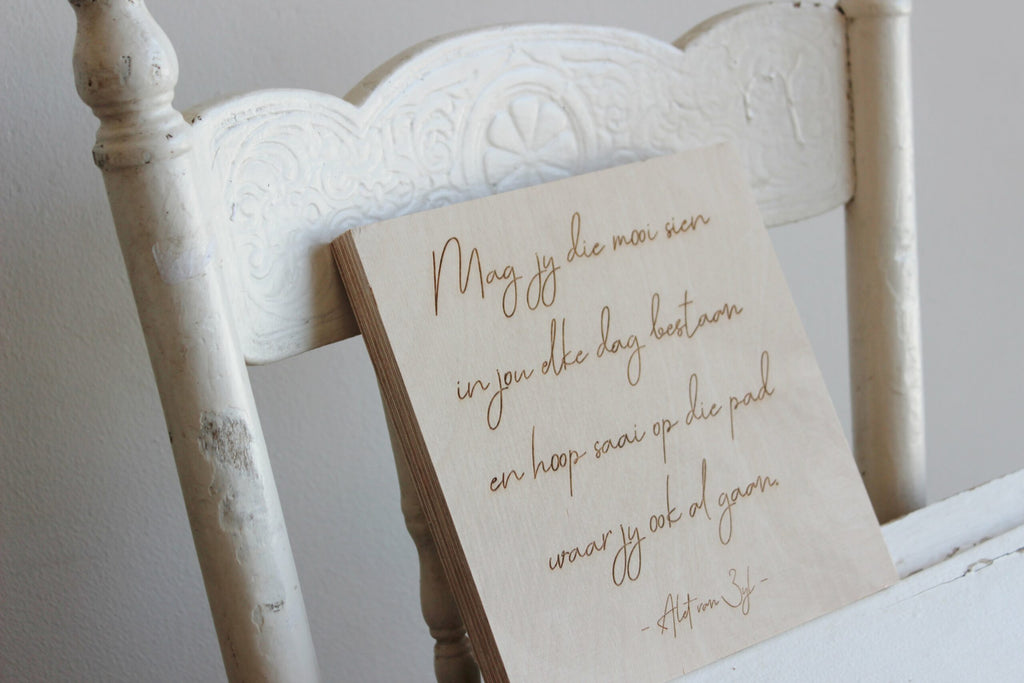 Mag jy die mooi sien
in jou elke dag bestaan
en hoop saai op die pad
waar jy ook al gaan.
- Alet van Zyl -